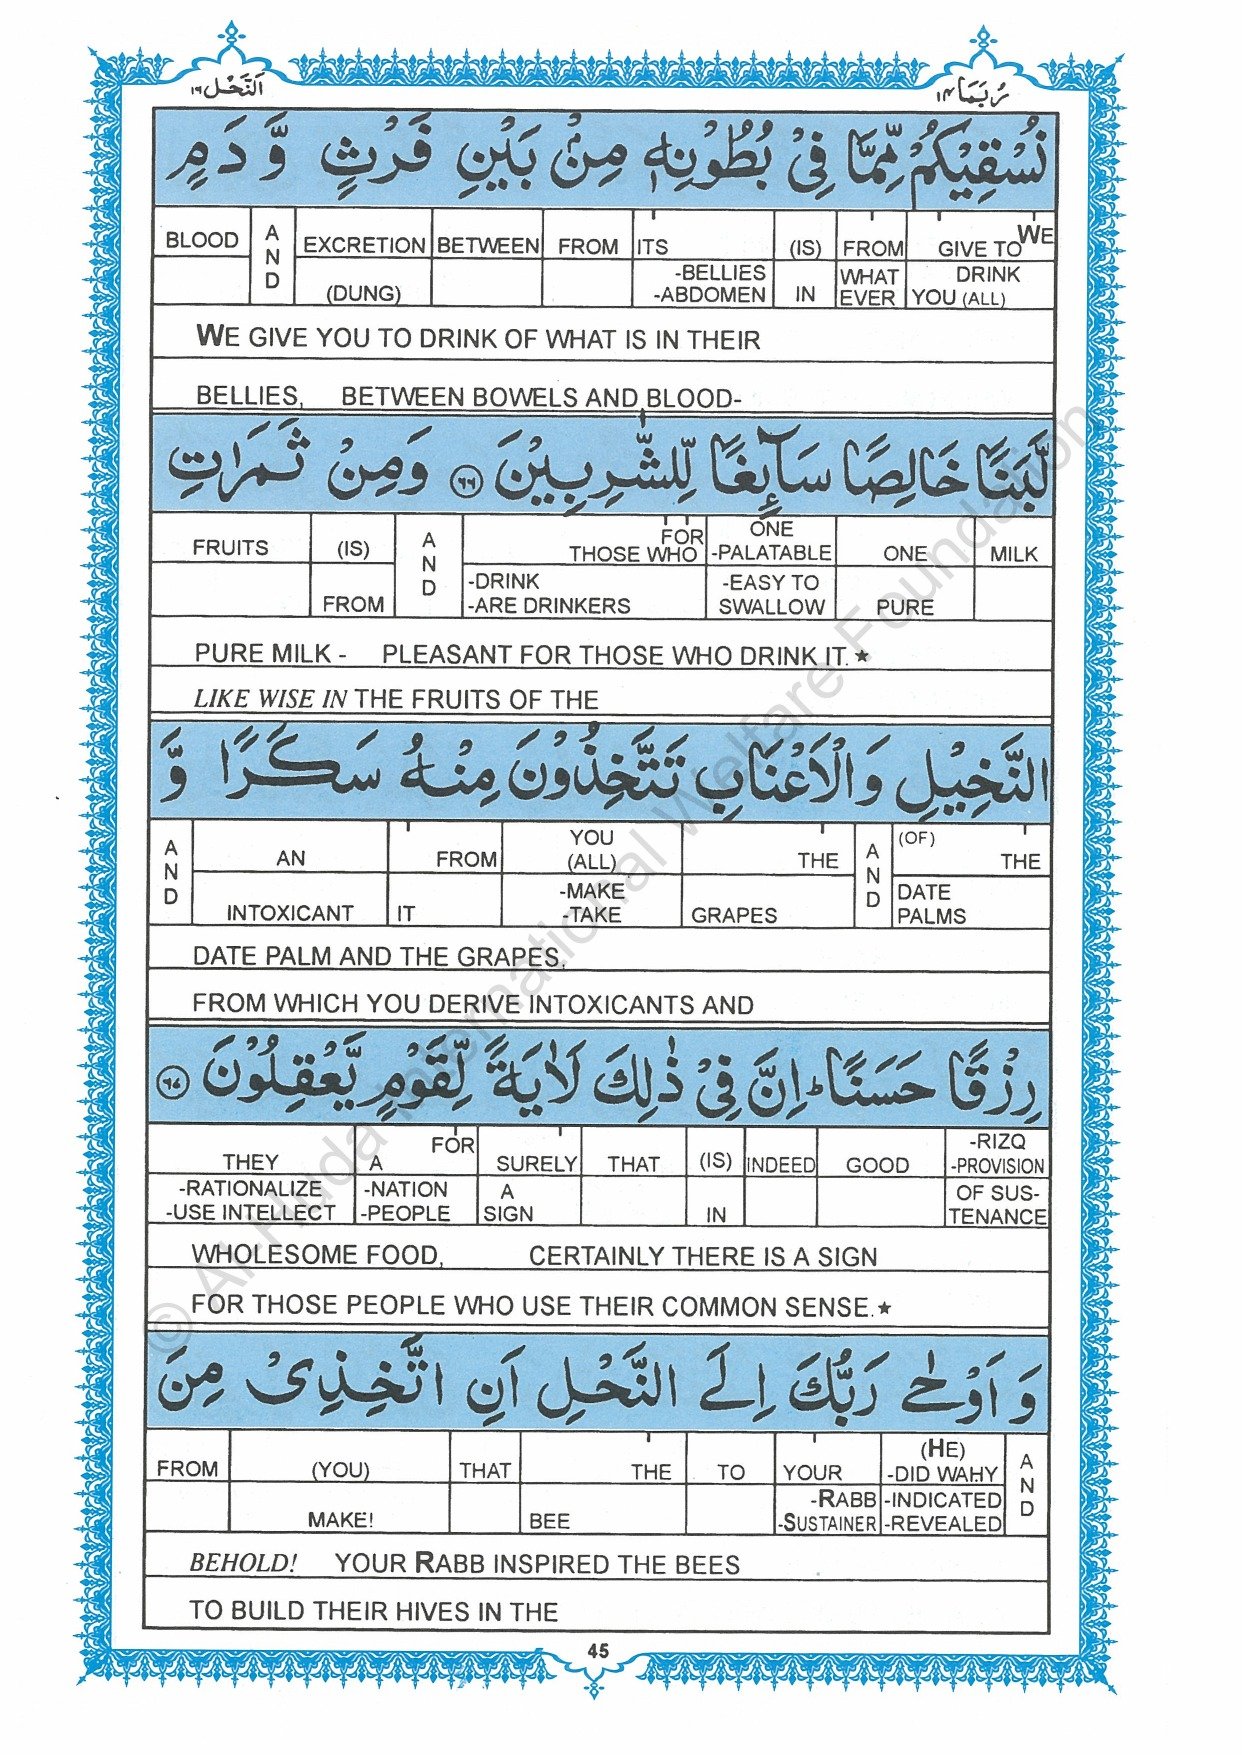 اَلنَّحْل ١٦
رُبَمَا ١٤
نُسْقِيْكُمْ مِّمَّا فِيْ بُطُوْنِهٖ مِنْۢ بَيْنِ فَرْثٍ وَّ دَمٍ
BLOOD AND EXCRETION BETWEEN FROM ITS (IS) FROM GIVE TO WE
(DUNG) -BELLIES -ABDOMEN IN WHAT EVER DRINK YOU (ALL)
WE GIVE YOU TO DRINK OF WHAT IS IN THEIR
BELLIES, BETWEEN BOWELS AND BLOOD-
لَّبَنًا خَالِصًا سَآئِغًا لِّلشّٰرِبِيْنَ ٦٦ وَمِنْ ثَمَرٰتِ
FRUITS (IS) AND FOR THOSE WHO ONE -PALATABLE ONE MILK
FROM -DRINK -ARE DRINKERS -EASY TO SWALLOW PURE
PURE MILK - PLEASANT FOR THOSE WHO DRINK IT.★
LIKE WISE IN THE FRUITS OF THE
النَّخِيْلِ وَالْاَعْنَابِ تَتَّخِذُوْنَ مِنْهُ سَكَرًا وَّ
AND AN FROM YOU (ALL) THE AND (OF) THE
INTOXICANT IT -MAKE -TAKE GRAPES DATE PALMS
DATE PALM AND THE GRAPES,
FROM WHICH YOU DERIVE INTOXICANTS AND
رِزْقًا حَسَنًا ؕ اِنَّ فِيْ ذٰلِكَ لَاٰيَةً لِّقَوْمٍ يَّعْقِلُوْنَ ٦٧
THEY FOR A SURELY THAT (IS) INDEED GOOD -RIZQ -PROVISION
-RATIONALIZE -USE INTELLECT -NATION -PEOPLE A SIGN IN OF SUS-TENANCE
WHOLESOME FOOD, CERTAINLY THERE IS A SIGN
FOR THOSE PEOPLE WHO USE THEIR COMMON SENSE.★
وَ اَوْحٰى رَبُّكَ اِلَى النَّحْلِ اَنِ اتَّخِذِىْ مِنَ
FROM (YOU) THAT THE TO YOUR (HE) -DID WAHY AND
MAKE! BEE -RABB -SUSTAINER -INDICATED -REVEALED
BEHOLD! YOUR RABB INSPIRED THE BEES
TO BUILD THEIR HIVES IN THE
45
© Al-Huda International Welfare Foundation